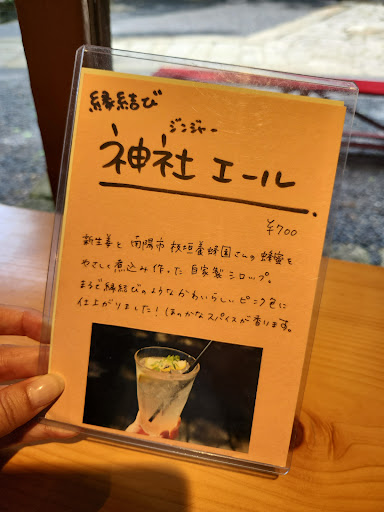 縁結び
ジンジャー
神社エール
¥700
新生姜と南陽市板垣養蜂園さんの蜂蜜を
やさしく煮込み作った自家製シロップ。
まるで縁結びのようなかわいらしいピンク色に
仕上がりました！ほのかなスパイスが香ります。